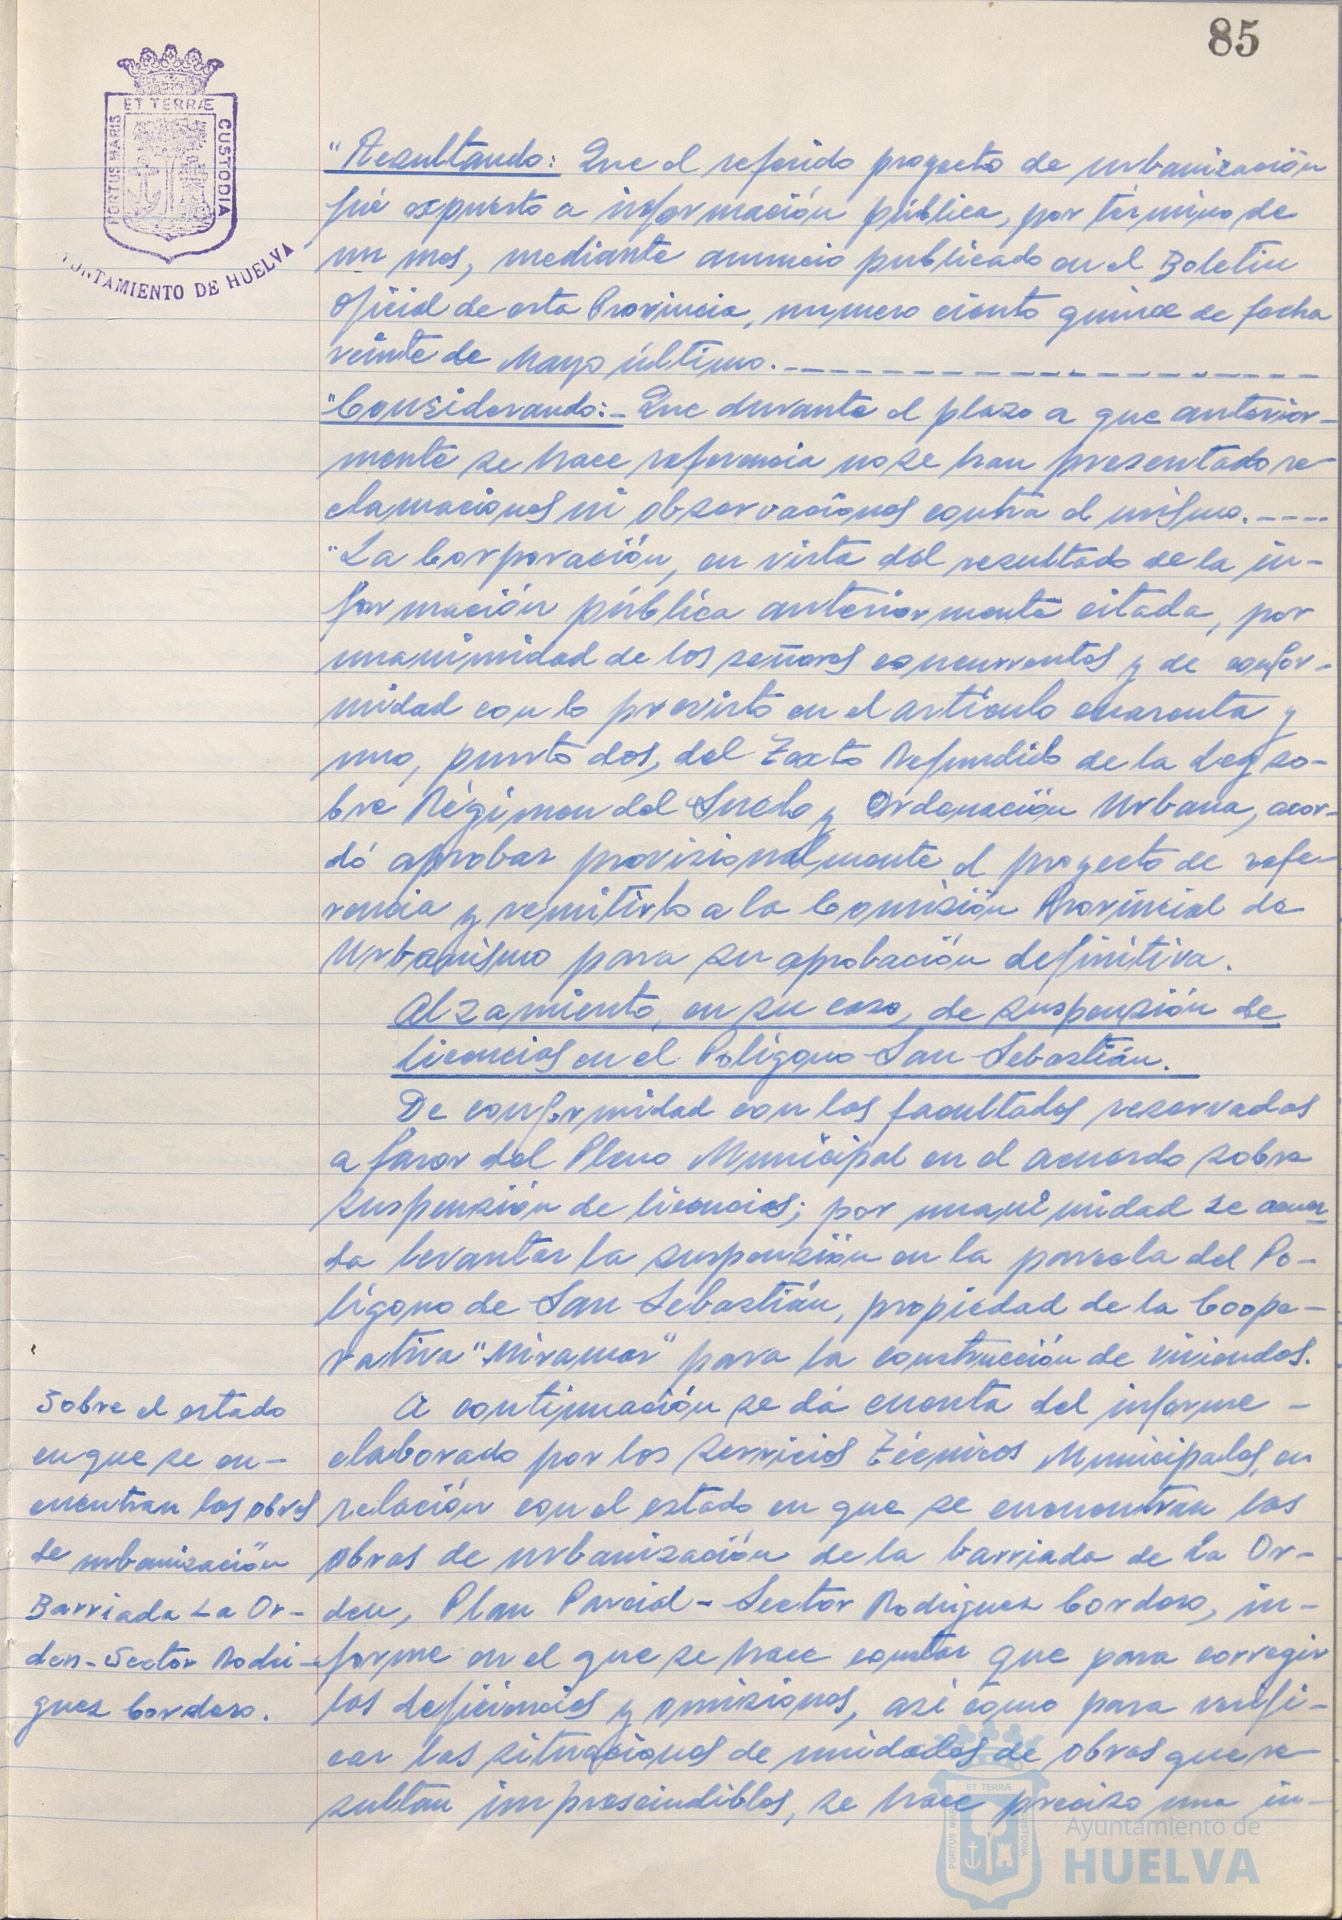 85
ET TERRÆ
PORTUS MARIS
CUSTODIA
AYUNTAMIENTO DE HUELVA
"Resultando: Que el referido proyecto de urbanización
fué expuesto a información pública, por término de
un mes, mediante anuncio publicado en el Boletin
Oficial de esta Provincia, número ciento quince de fecha
veinte de Mayo último.
"Considerando:- Que durante el plazo a que anterior-
mente se hace referencia no se han presentado re-
clamaciones ni observaciones contra el mismo.
"La Corporación, en vista del resultado de la in-
formación pública anteriormente citada, por
unanimidad de los señores concurrentes y de confor-
midad con lo previsto en el artículo cuarenta y
uno, punto dos, del Texto Refundido de la Ley so-
bre Régimen del Suelo y Ordenación Urbana, acor-
dó aprobar provisionalmente el proyecto de refe-
rencia y remitirlo a la Comisión Provincial de
Urbanismo para su aprobación definitiva.
Alzamiento, en su caso, de suspensión de
licencias en el Polígono San Sebastián.
De conformidad con las facultades reservadas
a favor del Pleno Municipal en el acuerdo sobre
suspensión de licencias; por unanimidad se acuer
da levantar la suspensión en la parcela del Po-
lígono de San Sebastián, propiedad de la Coope-
rativa "Miramar" para la construcción de viviendas.
Sobre el estado
en que se en-
cuentran las obras
de urbanización
Barriada La Or-
den-Sector Rodri-
guez Cordero.
A continuación se dá cuenta del informe -
elaborado por los Servicios Técnicos Municipales, en
relación con el estado en que se encuentran las
obras de urbanización de la barriada de La Or-
den, Plan Parcial - Sector Rodriguez Cordero, in-
forme en el que se hace constar que para corregir
las deficiencias y omisiones, así como para verifi-
car las situaciones de unidades de obras que re-
sultan imprescindibles, se hace preciso una in-
ET TERRÆ
Ayuntamiento de
HUELVA